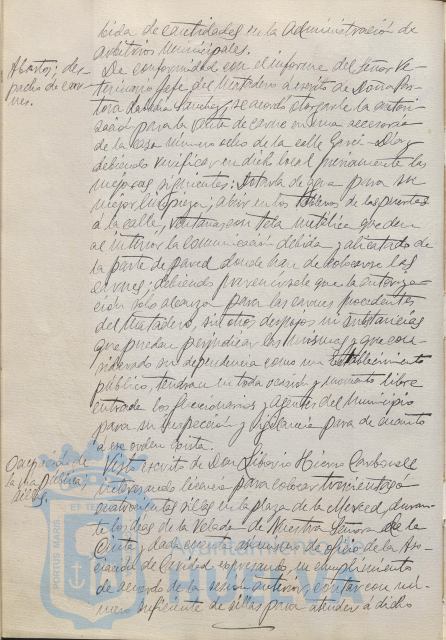 bida de cantidades en la Administración de
arbitrios Municipales.
Abastos; des-
pacho de car-
nes.
De conformidad con el informe del Señor Ve-
terinario Jefe del Matadero a escrito de Doña Pas-
tora Sánchez, se acordó otorgarle la autori-
zación para la venta de carne en una accesoria
de la casa número ocho de la calle Garci-Díaz
debiendo verificar en dicho local previamente las
mejoras siguientes: dotarla de agua para su
mejor limpieza; abrir en los tableros de las puertas
á la calle, ventanas con tela metálica que den
al interior la comunicación debida y alicatado de
la parte de pared donde han de colocarse las
carnes; debiendo prevenirsele que la autoriza-
ción solo alcanza para las carnes procedentes
del Matadero, sin otros despojos ni substancias
que puedan perjudicar las mismas y que con-
siderado su dependencia como un Establecimiento
público, tendrán en toda ocasión y momento libre
entrada los funcionarios y agentes del Municipio
para su inspección y vigilancia para de cuanto
a ese orden
Ocupación de
la vía pública,
sillas.
Visto escrito de Don Liborio Hierro Carbonell
interesando licencia para colocar trescientas ó
cuatrocientas sillas en la plaza de la Merced, duran-
te los días de la Velada de Nuestra Señora de la
Cinta y dada cuenta asimismo de oficio de la Aso-
ciación de Caridad expresando, en cumplimiento
de acuerdo de la sesión anterior, contar con nú-
mero suficiente de sillas para atender a dicho
PORTUS MARIS
ET TE
Ayuntamiento
HUELVA